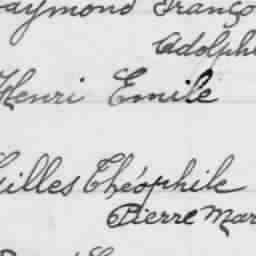 aymond Franço
Adolphe
Henri Emile
illes Théophile
Pierre Mar